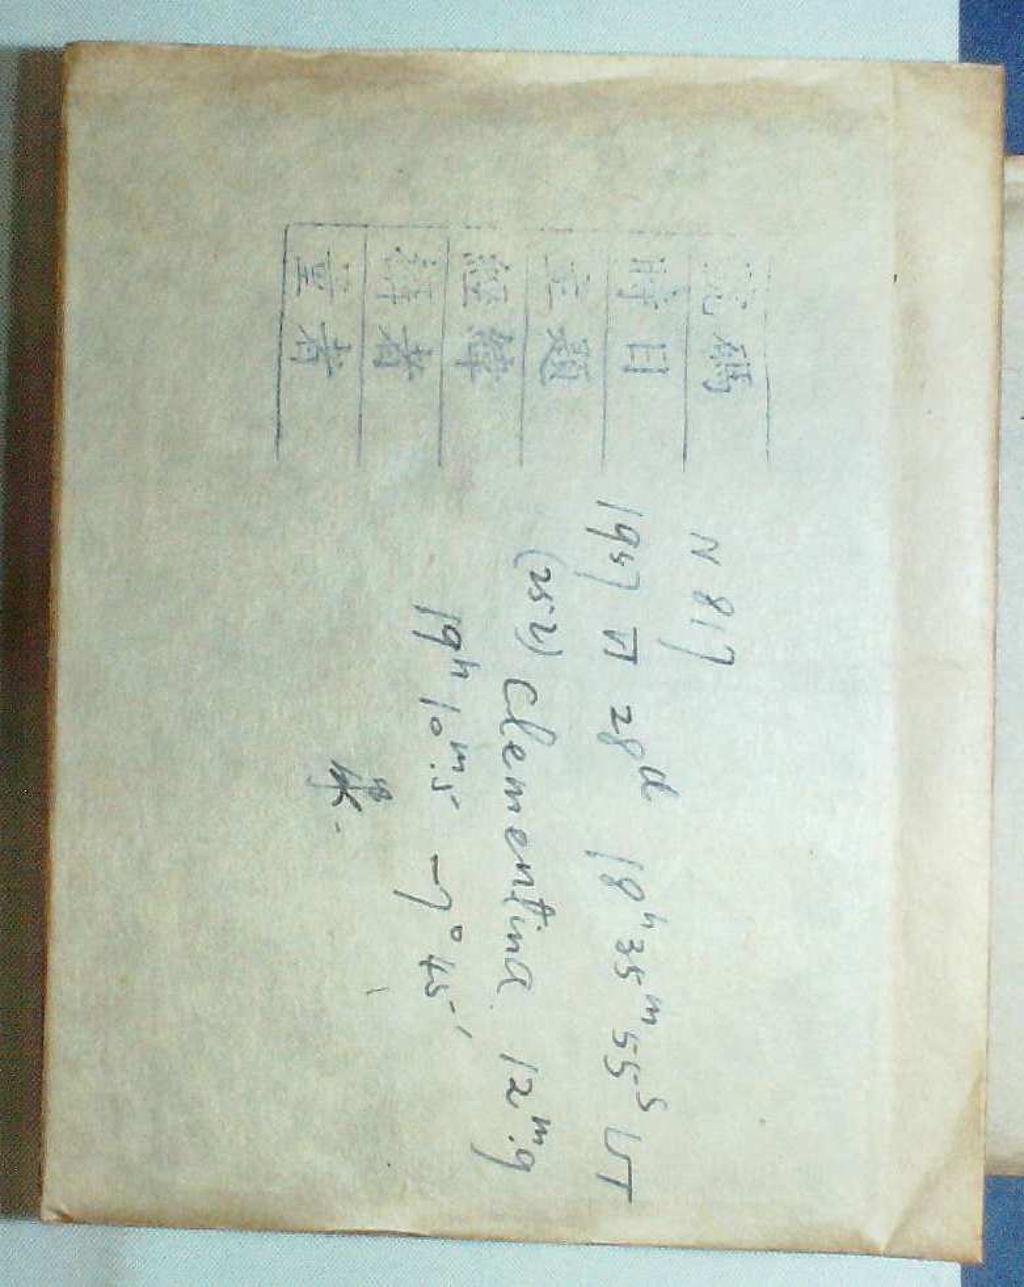 碼 N 817
時日 1957 VI 28ᵈ 18ʰ35ᵐ55ˢ UT
主題 (252) Clementina 12ᵐ.9
經緯 19ʰ10ᵐ.5 -7°45'
者
量者